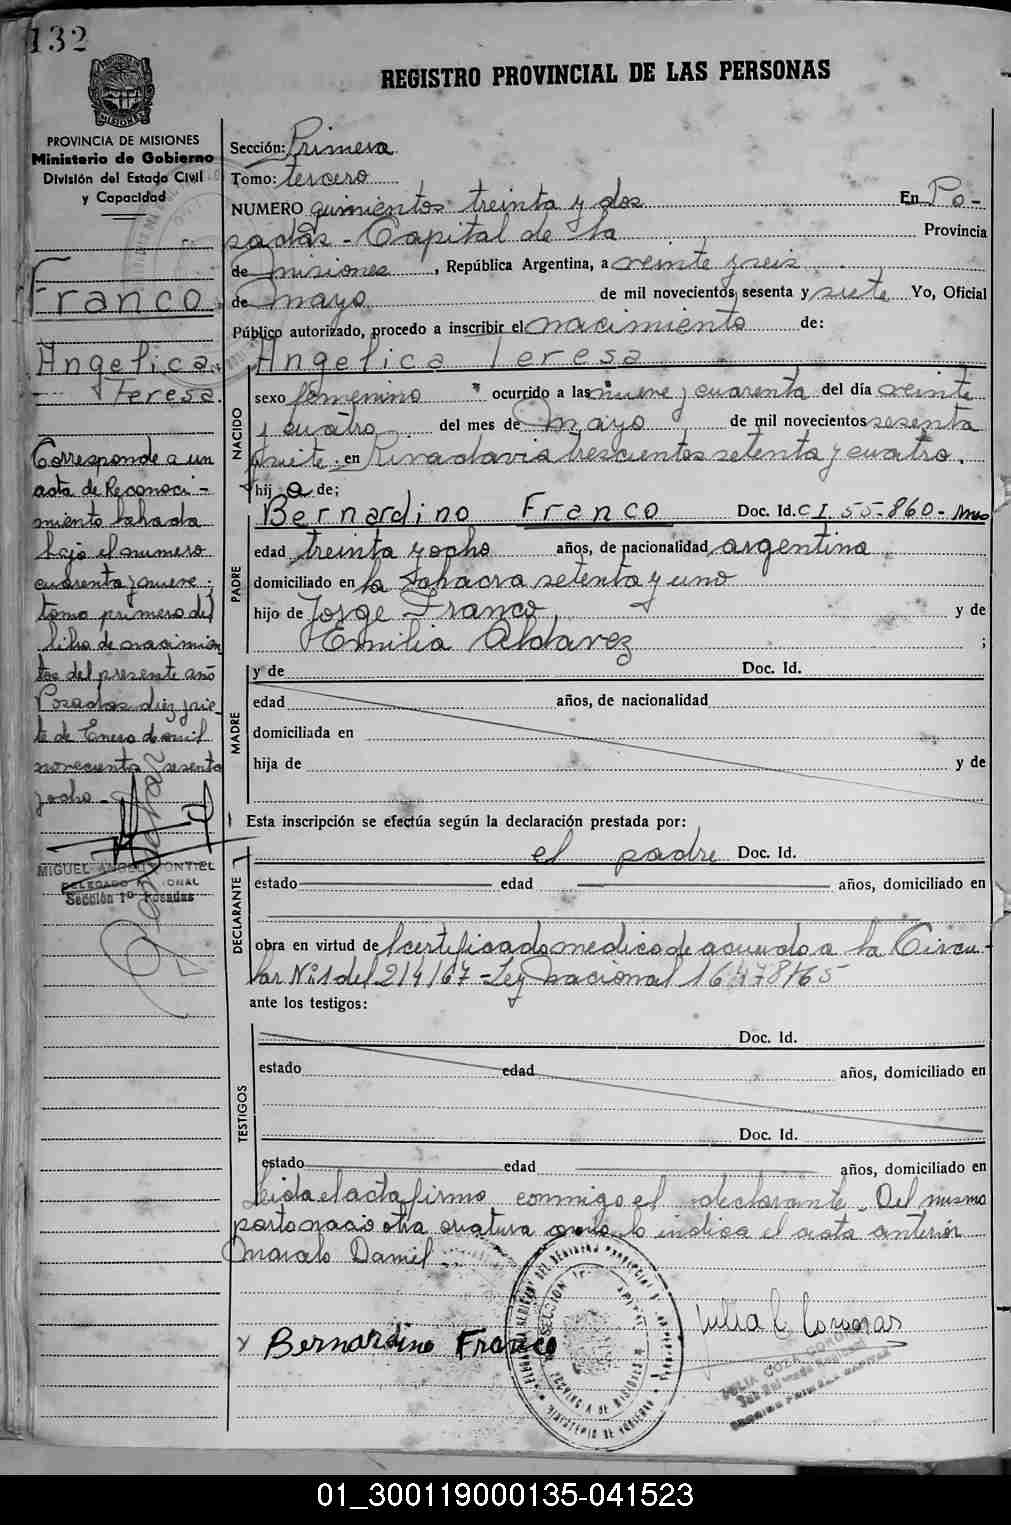 132
REGISTRO PROVINCIAL DE LAS PERSONAS
PROVINCIA DE MISIONES
Ministerio de Gobierno
División del Estado Civil
y Capacidad
Franco
Angelica
Teresa
Corresponde a un
acta de Reconoci-
miento labrada
bajo el numero
cuarenta y nueve;
tomo primero del
libro de nacimien
tos del presente año
Posadas diez y sie-
te de Enero de mil
novecientos sesenta
y ocho-
MIGUEL ANGEL MONTIEL
DELEGADO
Sección 1º Posadas
Sección: Primera
Tomo: tercero
NUMERO quinientos treinta y dos En Po-
sadas - Capital de la Provincia
de Misiones, República Argentina, a veinte y seis
de mayo de mil novecientos sesenta y siete Yo, Oficial
Público autorizado, procedo a inscribir el nacimiento de:
Angelica Teresa
NACIDO
sexo femenino ocurrido a las nueve y cuarenta del día veinte
y cuatro del mes de Mayo de mil novecientos sesenta
y siete en Rivadavia trescientos setenta y cuatro.
hija de;
PADRE
Bernardino Franco Doc. Id. C I 55-860-Mnes
edad treinta y ocho años, de nacionalidad argentina
domiciliado en la chacra setenta y uno
hijo de Jorge Franco y de
Emilia Aldavez ;
MADRE
y de Doc. Id.
edad años, de nacionalidad
domiciliada en
hija de y de
Esta inscripción se efectúa según la declaración prestada por:
DECLARANTE
el padre Doc. Id.
estado edad años, domiciliado en
obra en virtud de certificado medico de acuerdo a la Circu-
lar Nº 1 del 2/4/67 - Ley Nacional 16478/65
ante los testigos:
TESTIGOS
Doc. Id.
estado edad años, domiciliado en
Doc. Id.
estado edad años, domiciliado en
Leida el acta firma conmigo el declarante. Del mismo
parto nacio otra criatura como lo indica el acta anterior
Marcelo Daniel
Bernardino Franco
01_300119000135-041523